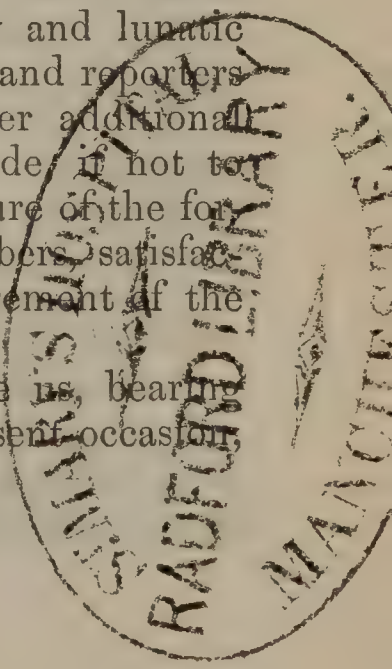 y and lunatic
and reporters
er additional
de if not to
ure of the for-
bers, satisfac-
rement of the
us, bearing
sent occasion,
HOSPITAL
RADFORD LIBRARY
MANCHESTER